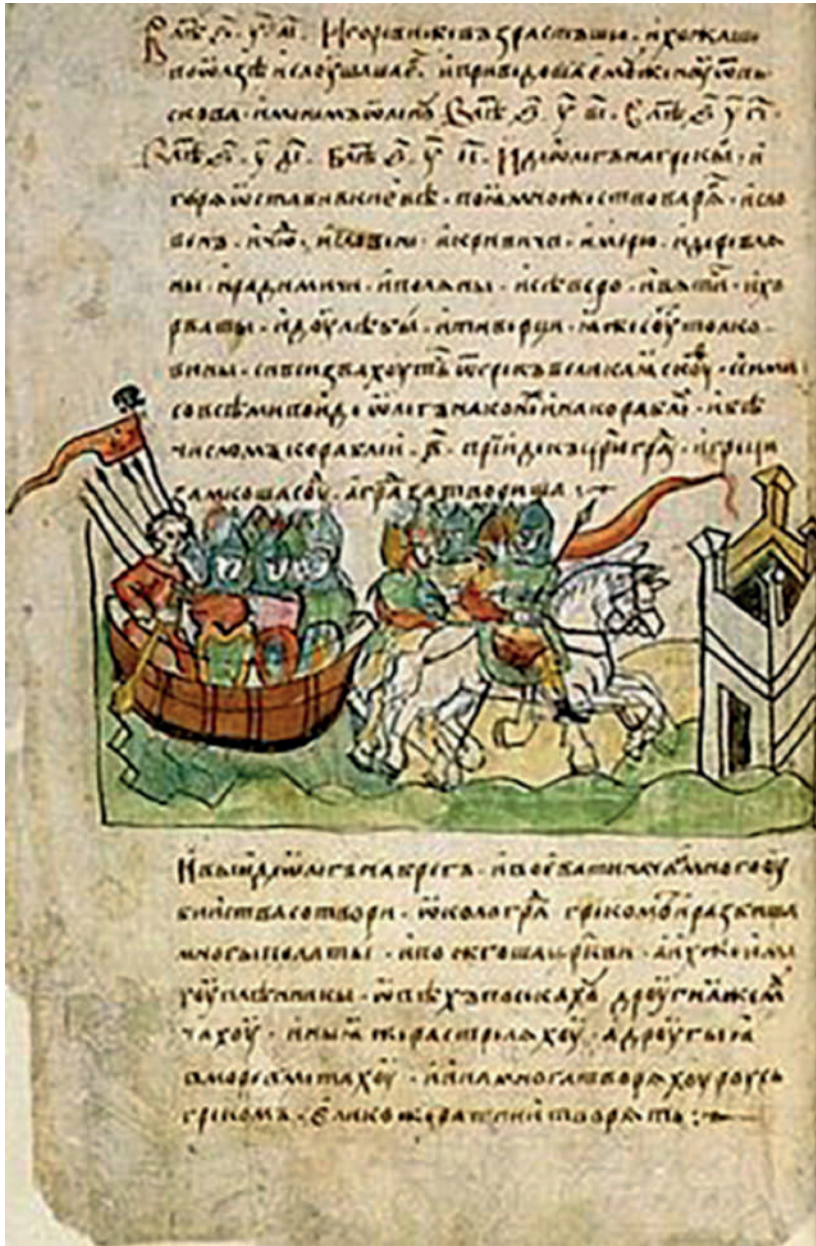 В лѣ ҂ѕ҃. у҃ аі҃. Игореви же възрастъшю. и хожаше
по ѡлзѣ и слоушаше г҃. и приведоша емꙋ женꙋ ѿ пь
скова. именемъ ѡленꙋ. В лѣ ҂ѕ҃. у҃ ві҃. В лѣ ҂ѕ҃ у҃ гі҃.
В лѣ ҂ѕ҃. у҃ ді҃. В лѣ ҂ѕ҃. у҃ еі҃. Иде ѡлегъ на грекы. и
горѧ ѡставивъ киевѣ. поꙗ множество варѧ. и сло
венъ. и чю. и словени. и кривичи. и мерю. и деревлѧ
ны. и радимичи. и полѧны. и сѣверо. и вѧти. и хо
рваты. и доулѣбы. и тиверци. ꙗже соу толко
вины. си вси звахоуть ѿ грекъ великаꙗ скоу. и сими
со всѣми поиде ѡлегъ на кон и на корабл. и бѣ
числомъ кораблей. в҃. прїиде къ црюгра. и греци
замкоша соу. а гра затвориша
И выиде ѡлегъ на брегъ. и воевати нача. и много оу
бийства сотвори. ѡколо гра грекомъ. и разбиша
многы полаты. и пожгоша цркви. а ихже има
хоу плѣнники. ѡвѣхъ посѣкахоу дроугиꙗ же м
чахоу. иныꙗ же растрелѧхоу. а дроугыꙗ
в море вметахоу. и ина многа творѧхоу роусь
грекомъ. елико же ратнии творѧть